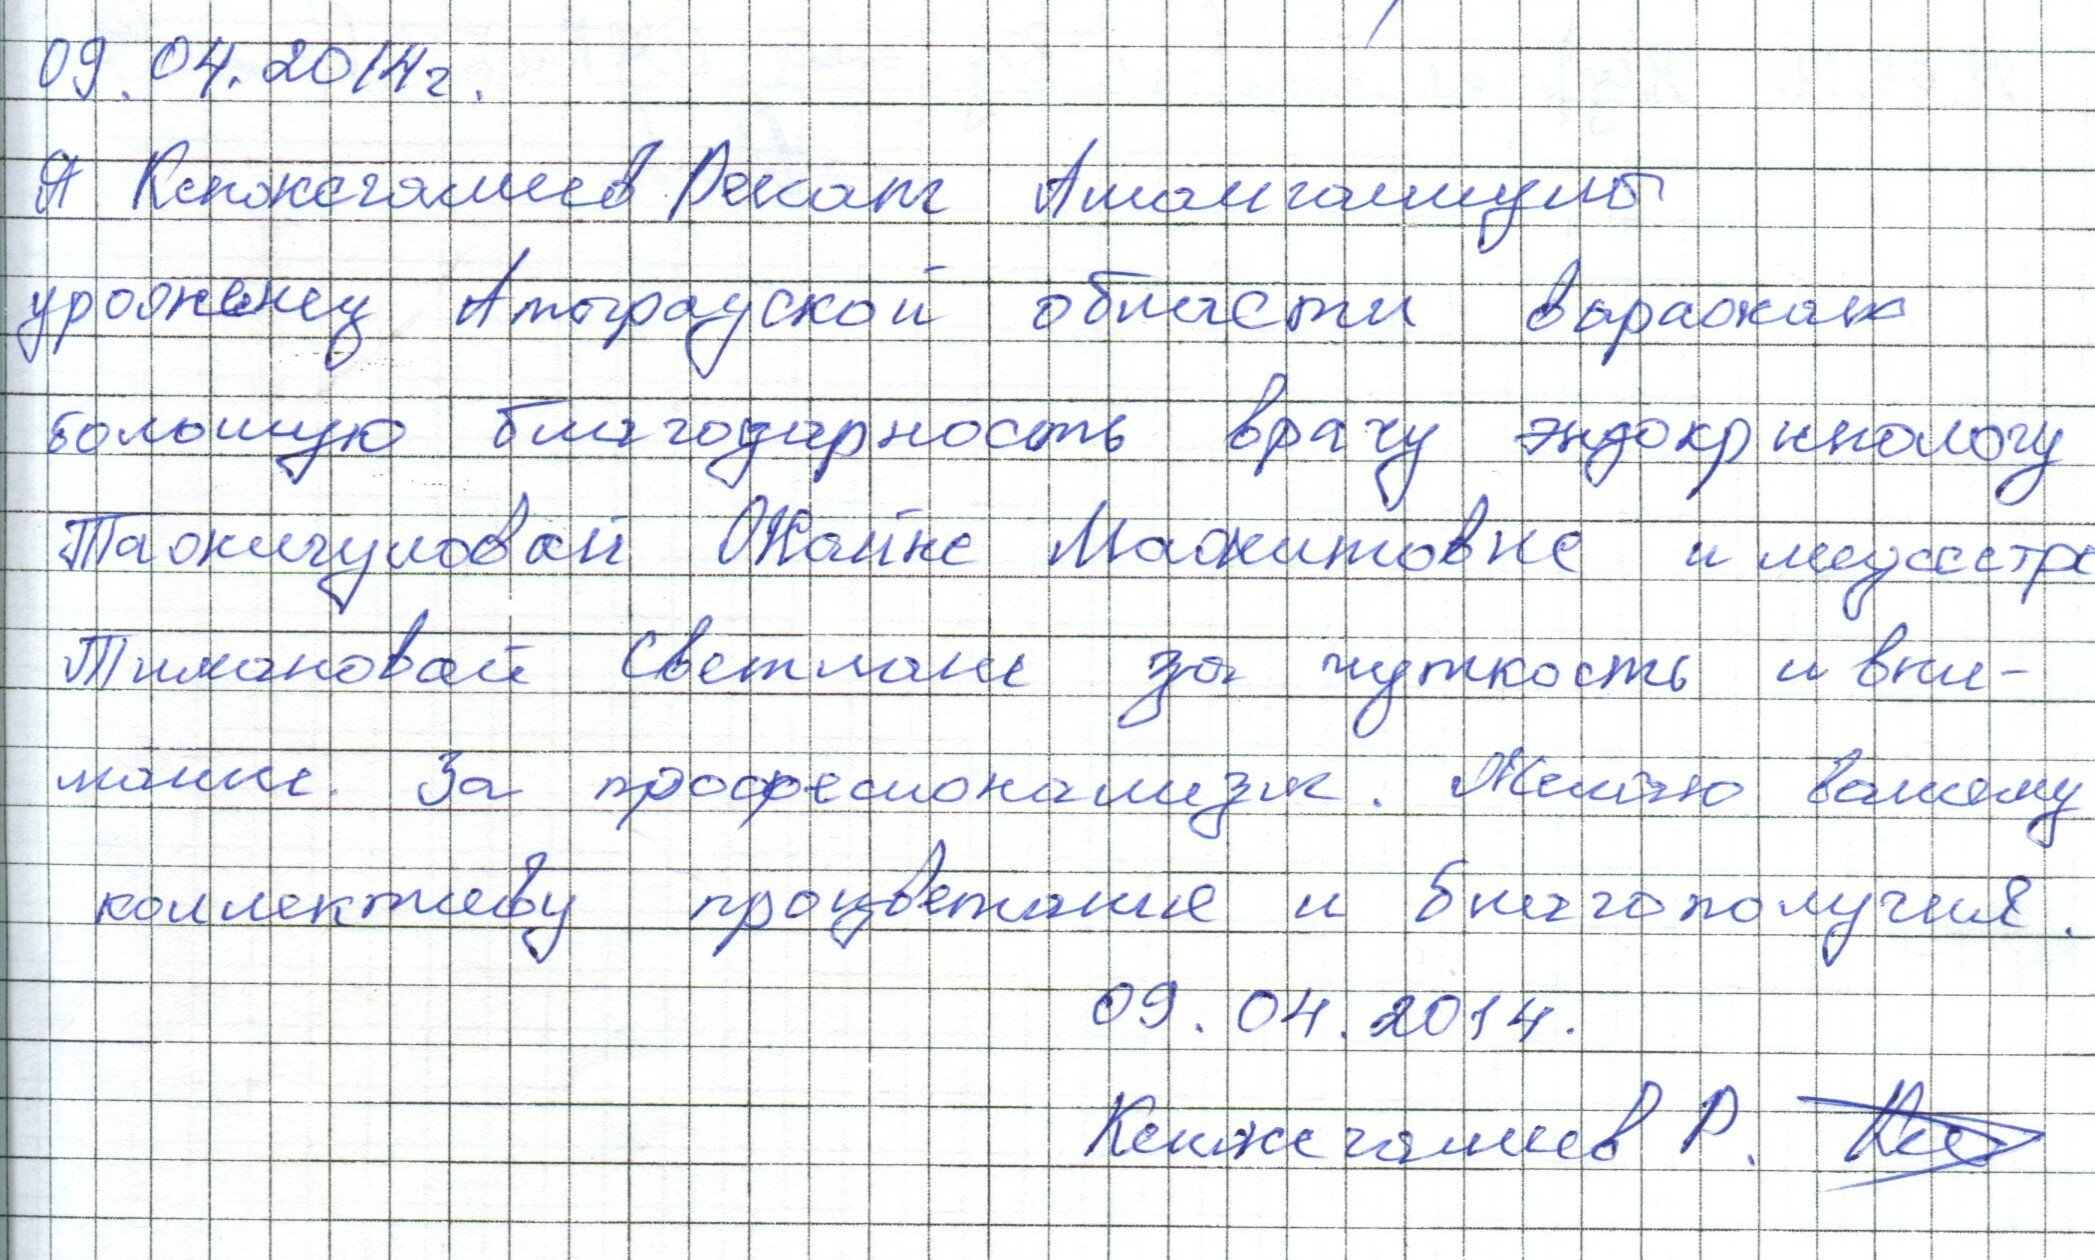 09.04.2014г.
Я Кенжегалиев Ренат Амангалиулы
уроженец Атырауской области выражаю
большую благодарность врачу эндокринологу
Тажигуловой Жайне Мажитовне и медсестре
Тимановой Светлане за чуткость и вни-
мание. За професионализм. Желаю вашему
коллективу процветание и благополучия.
09.04.2014.
Кенжегалиев Р.